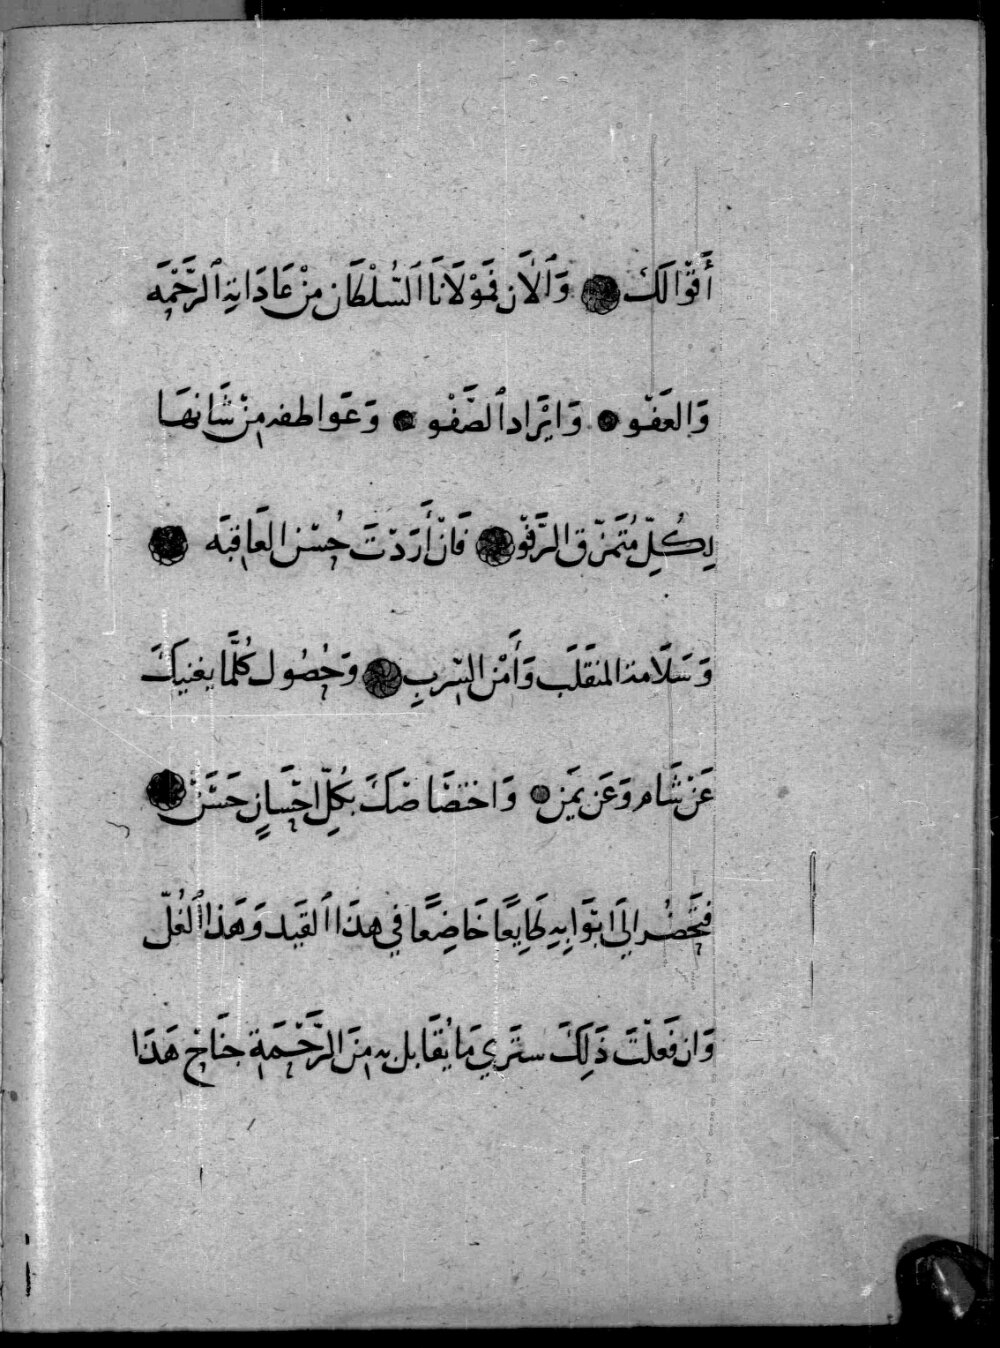 أَقْوَالَكَ وَٱلْأَن فَمَوْلَانَا ٱلسُّلْطَان مِنْ عَادَاتِهِ ٱلرَّحْمَه
وَالعَفْو وَايْرَاد ٱلصَّفْو وَعَوَاطفه مِنْ شَانهَا
لِكُلِّ مُتَمَزّق الرَّفْو فَانْ أَرَدْتَ حُسْن العَاقبَه
وَسَلَامة المنقَلَب وَأَمْن السّربِ وَحُصُول كُلَّمَا يغنيكَ
عَنْ شَام وَعَن يَمَن وَاختصَاصَكَ بكُلِّ احْسَانٍ حَسَنْ
فتَحضُر الَى ابْوَابِهِ طَايِعًا خَاضِعًا في هذَا ٱلقَيد وَهَذا ٱلغُلّ
وَان فَعلْتَ ذَلِكَ ستَرَي مَا يُقَابل به منَ الرَّحْمَة جنَاح هَذَا